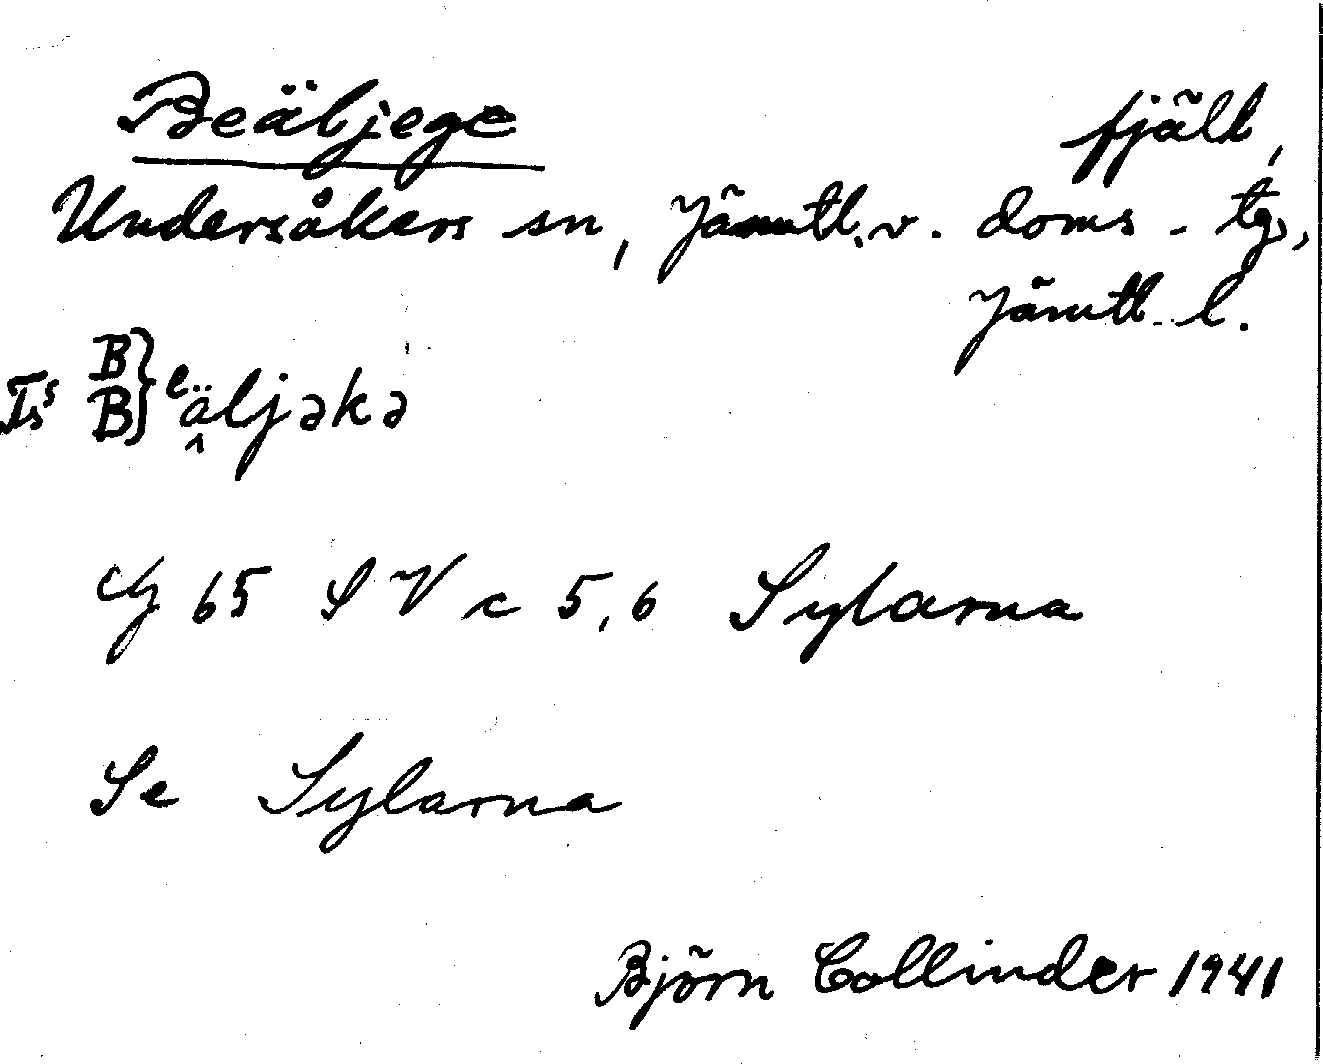 Beäljege fjäll,
Undersåkers sn, Jämtl. v. doms-tg,
Jämtl. l.
B B } eäljəkə
65 SV c 5,6 Sylarna
Se Sylarna
Björn Collinder 1941